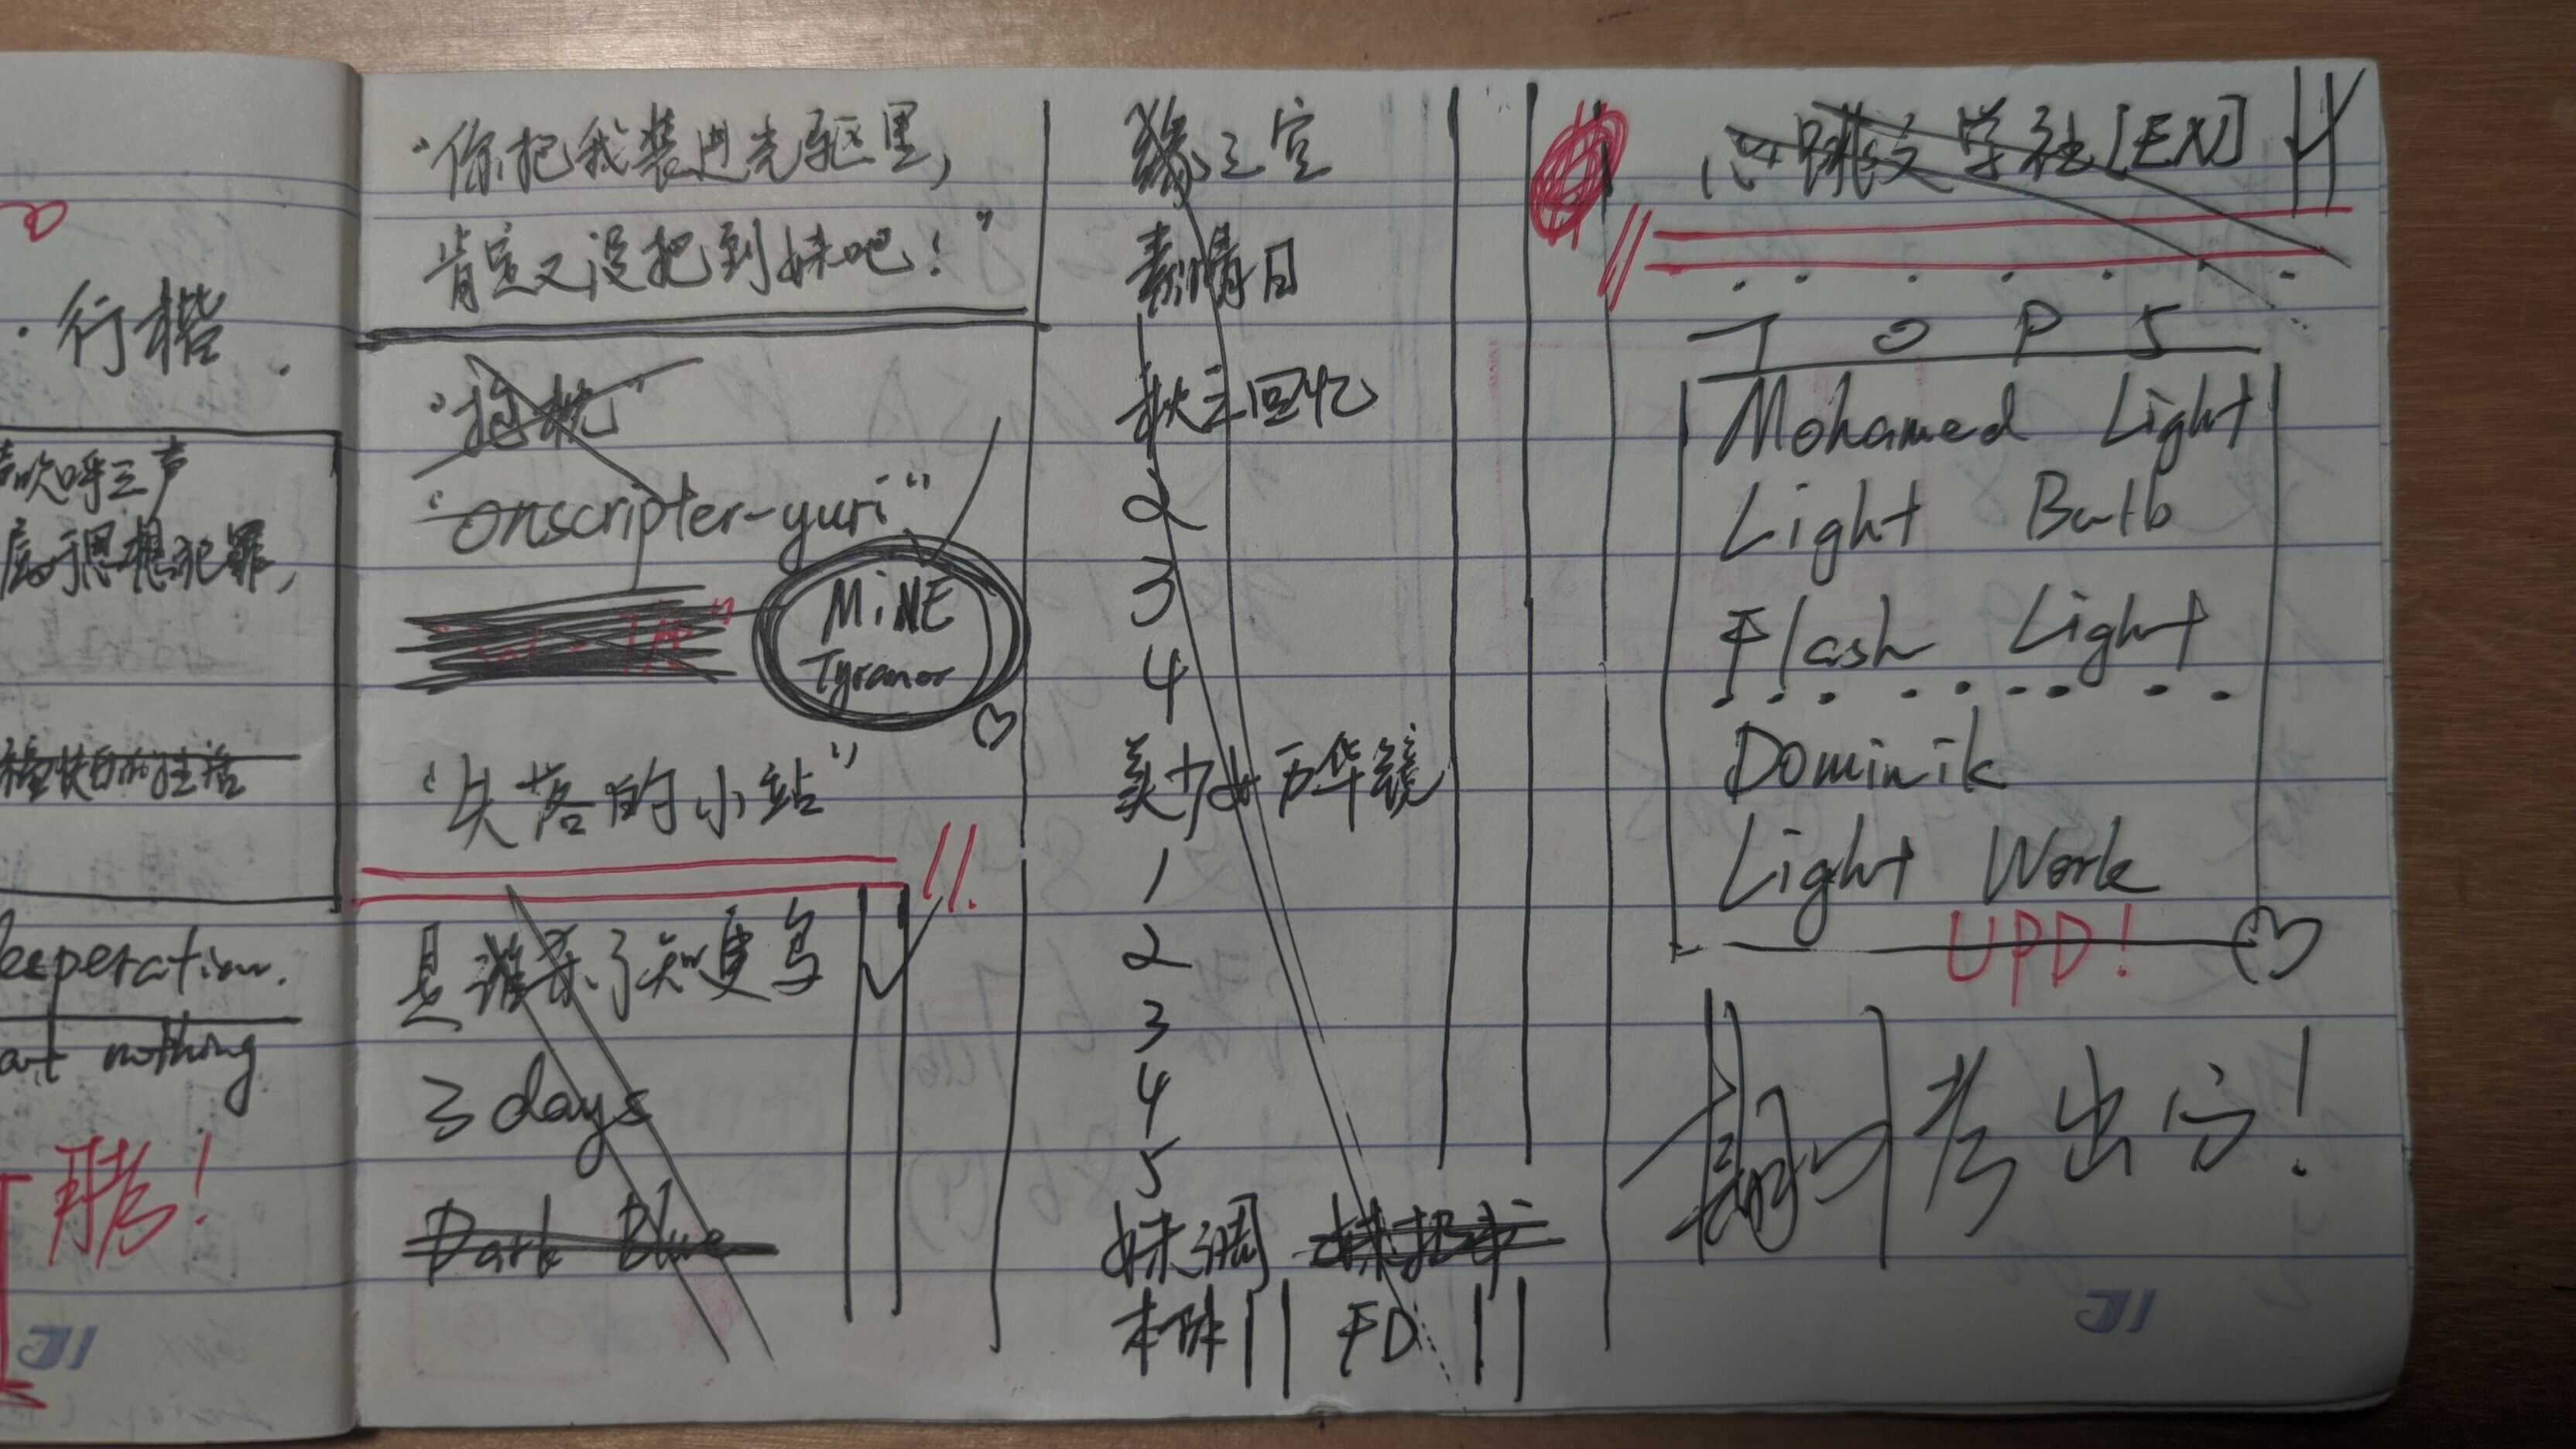 行楷
欢呼三声
属于思想犯罪,
愉快的生活
desperation.
nothing
联考!
"你把我装进先驱里,
肯定又没把到妹吧!"
"抱枕"
"onscripter-yuri"
MiNE
Tyranor
"失落的小站"
是谁杀了知更鸟
3 days
Dark Blue
缘之空
素晴日
秋之回忆
2
3
4
美少女万华镜
1
2
3
4
5
妹调
本妹 FD
心跳文学社[EN]
TOP5
Mohamed Light
Light Bulb
Flash Light
Dominik
Light Work
UPD!
期中考出分!